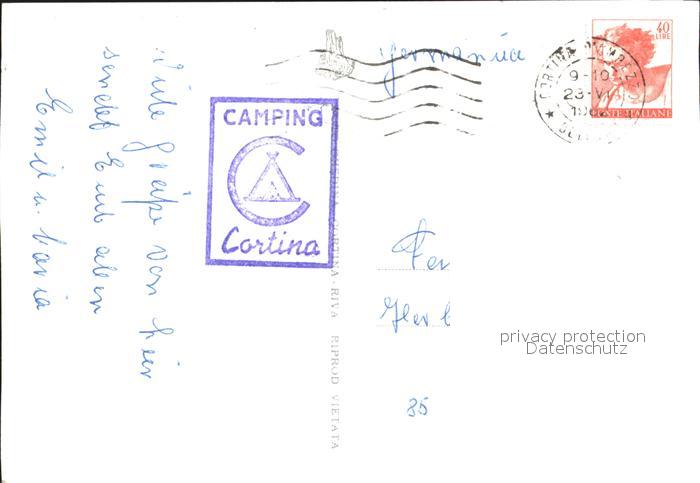 Viele Grüße von hier
sendet Euch allen
Emil u. Maria
CAMPING
Cortina
RIVA RIPROD VIETATA
Germania
40
LIRE
POSTE ITALIANE
CORTINA D'AMPEZZO
9-10
23-VI
privacy protection
Datenschutz
85